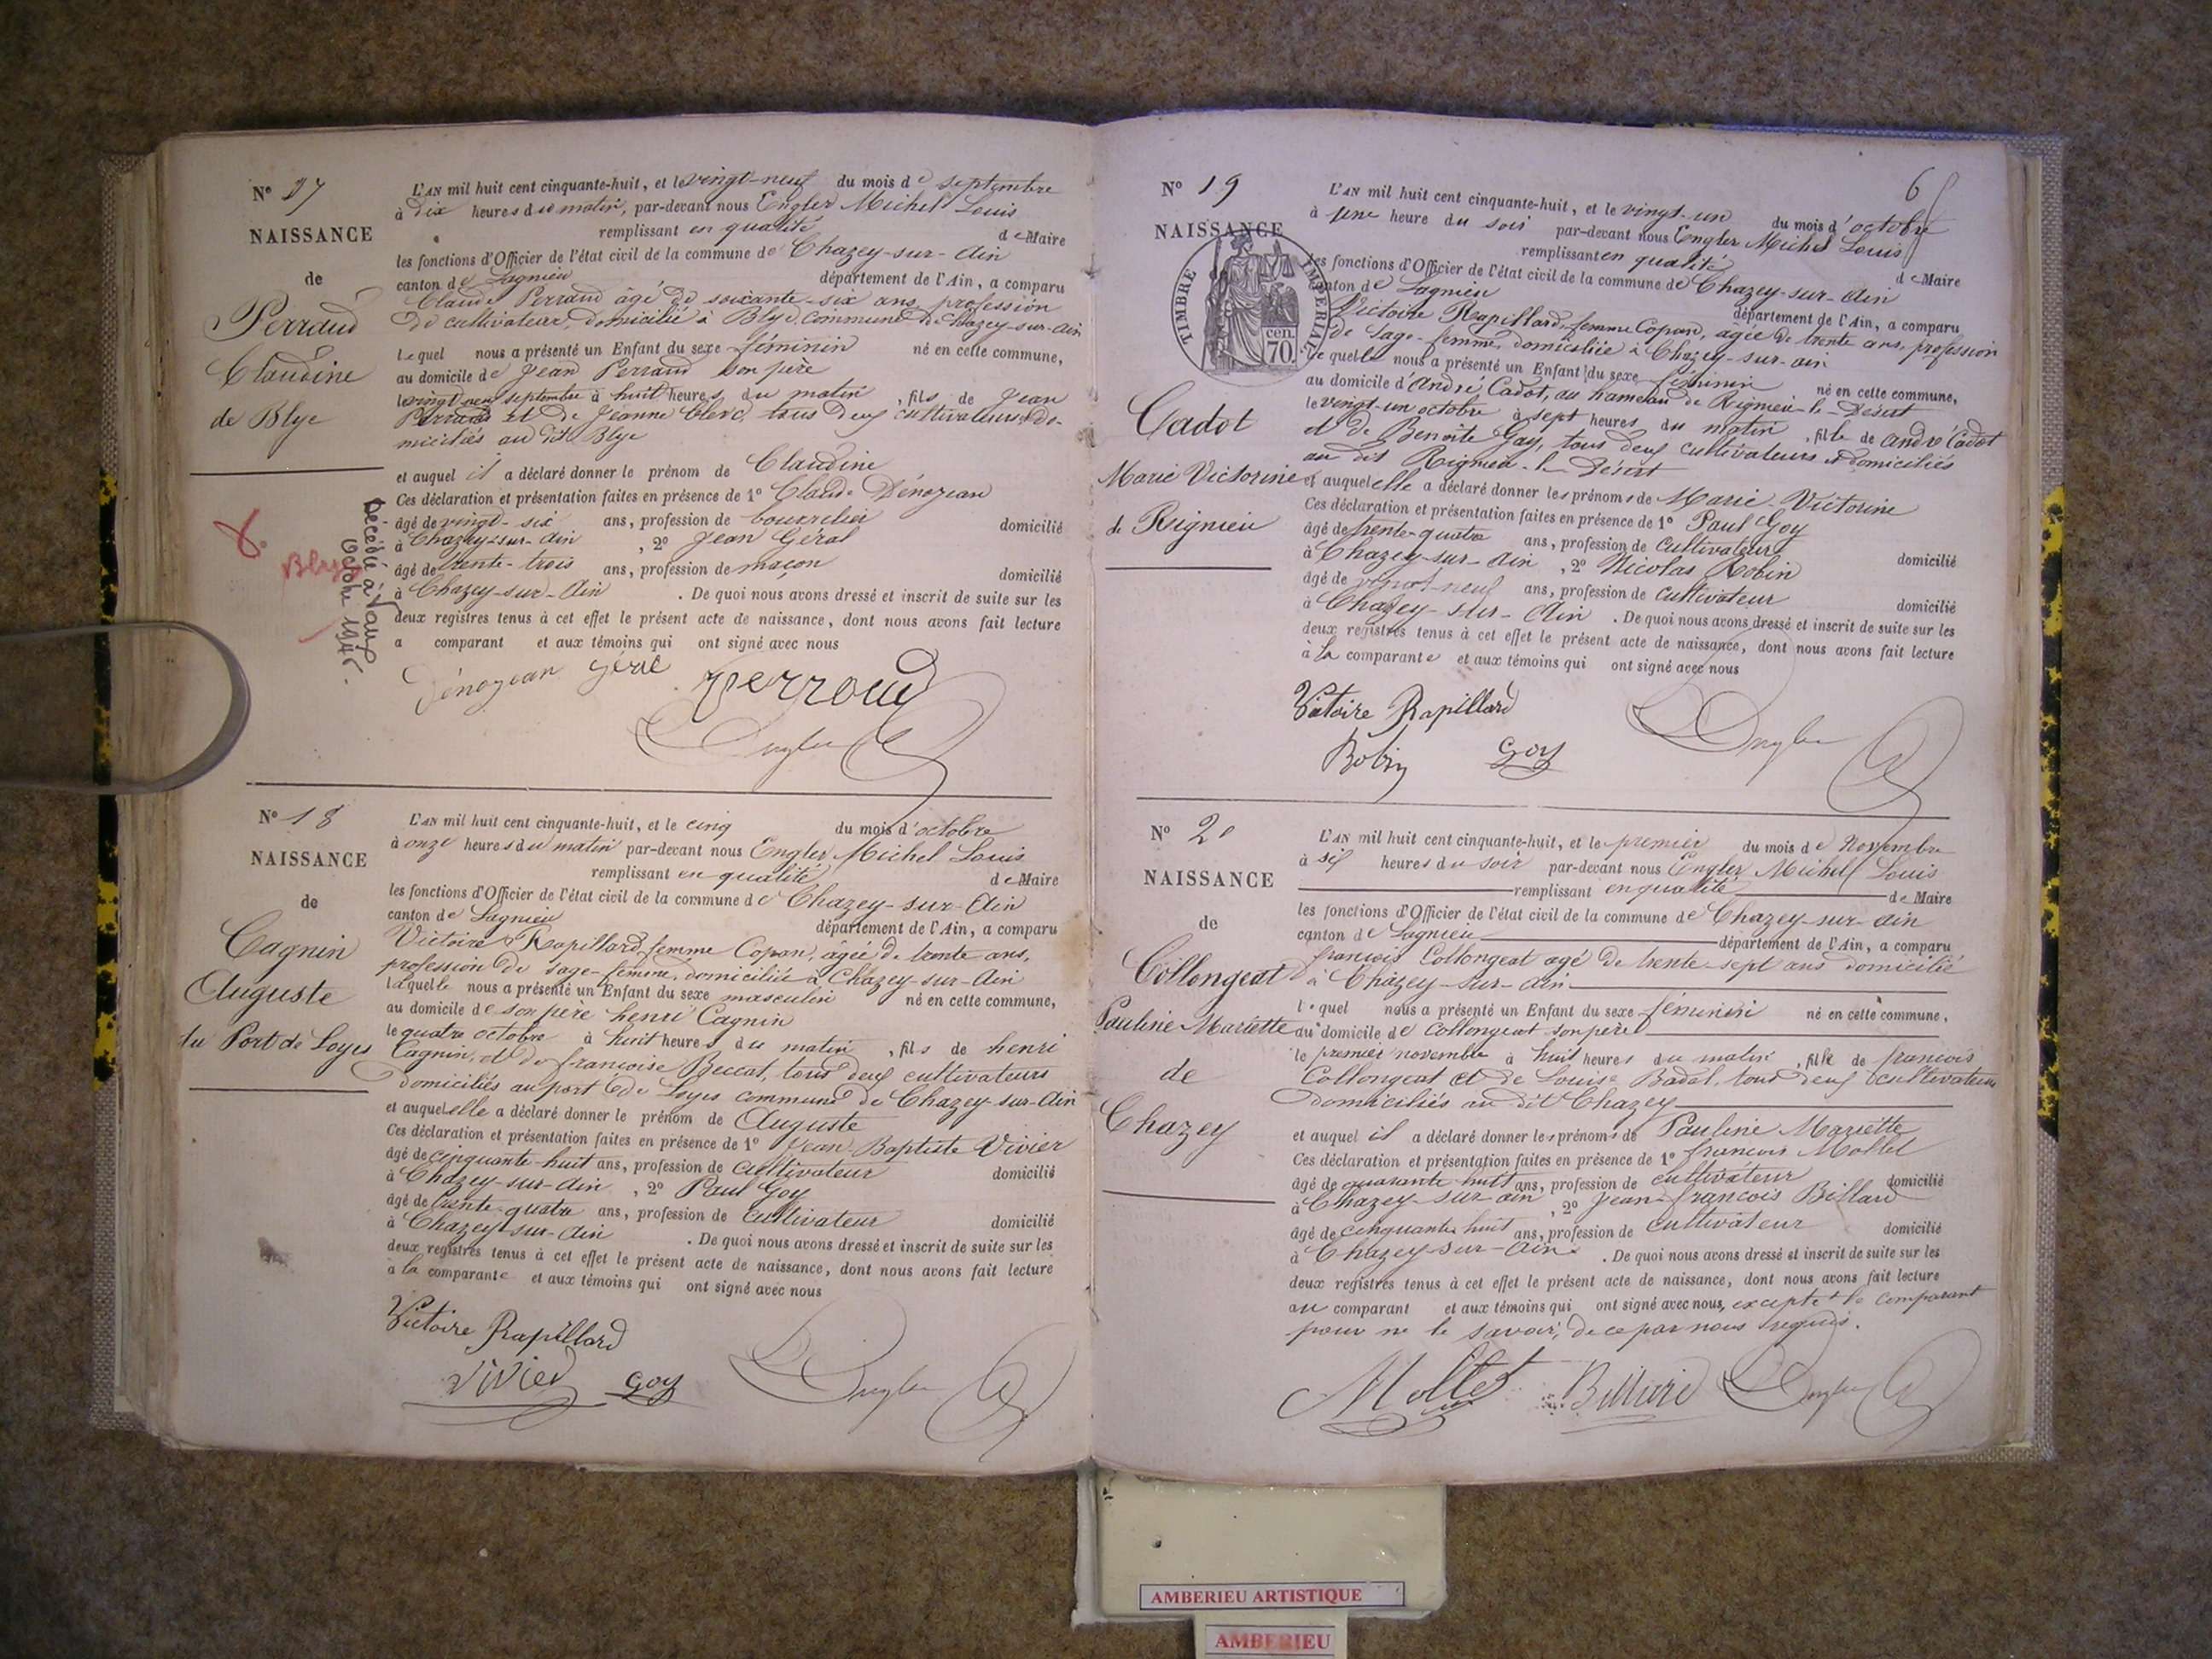 N° 17
NAISSANCE
de
Perraud
Claudine
de Blye
Décédée à Vaux
Octobre 1946.
Blye
L'AN mil huit cent cinquante-huit, et le vingt-neuf du mois de septembre
à dix heures du matin, par-devant nous Engler Michel Louis
remplissant en qualité de Maire
les fonctions d'Officier de l'état civil de la commune de Chazey-sur-Ain
canton de Lagnieu département de l'Ain, a comparu
Claude Perraud âgé de soixante-six ans, profession
de cultivateur, domicilié à Blye, commune de Chazey-sur-Ain
lequel nous a présenté un Enfant du sexe féminin né en cette commune,
au domicile de Jean Perraud son père
le vingt neuf septembre à huit heures du matin, fils de Jean
Perraud et de Jeanne Clerc, tous deux cultivateurs do-
miciliés au dit Blye
et auquel il a déclaré donner le prénom de Claudine
Ces déclaration et présentation faites en présence de 1° Claude Dénozean
âgé de vingt-six ans, profession de bourrelier domicilié
à Chazey-sur-Ain, 2° Jean Géral
âgé de trente-trois ans, profession de maçon domicilié
à Chazey-sur-Ain. De quoi nous avons dressé et inscrit de suite sur les
deux registres tenus à cet effet le présent acte de naissance, dont nous avons fait lecture
a comparant et aux témoins qui ont signé avec nous
Dénozean Géral Perroud
Engler
N° 18
NAISSANCE
de
Cagnin
Auguste
du Port de Loyes
L'AN mil huit cent cinquante-huit, et le cinq du mois d'octobre
à onze heures du matin par-devant nous Engler Michel Louis
remplissant en qualité de Maire
les fonctions d'Officier de l'état civil de la commune de Chazey-sur-Ain
canton de Lagnieu département de l'Ain, a comparu
Victoire Rapillard, femme Copan, âgée de trente ans,
profession de sage-femme, domiciliée à Chazey-sur-Ain
laquelle nous a présenté un Enfant du sexe masculin né en cette commune,
au domicile de son père henri Cagnin
le quatre octobre à huit heures du matin, fils de henri
Cagnin, et de françoise Beccat, tous deux cultivateurs
domiciliés au port de Loyes commune de Chazey-sur-Ain
et auquel elle a déclaré donner le prénom de Auguste
Ces déclaration et présentation faites en présence de 1° Jean-Baptiste Vivier
âgé de cinquante-huit ans, profession de cultivateur domicilié
à Chazey-sur-Ain, 2° Paul Goy
âgé de trente-quatre ans, profession de cultivateur domicilié
à Chazey-sur-Ain. De quoi nous avons dressé et inscrit de suite sur les
deux registres tenus à cet effet le présent acte de naissance, dont nous avons fait lecture
a la comparante et aux témoins qui ont signé avec nous
Victoire Rapillard
Vivier Goy Engler
6
N° 19
NAISSANCE
TIMBRE IMPERIAL
cen.
70.
Cadot
Marie Victorine
de Rignieu
L'AN mil huit cent cinquante-huit, et le vingt-un du mois d'octobre
à une heure du soir par-devant nous Engler Michel Louis
remplissant en qualité de Maire
les fonctions d'Officier de l'état civil de la commune de Chazey-sur-Ain
canton de Lagnieu département de l'Ain, a comparu
Victoire Rapillard, femme Copan, âgée de trente ans, profession
de sage-femme, domiciliée à Chazey-sur-ain
lequelle nous a présenté un Enfant du sexe féminin né en cette commune,
au domicile d'André Cadot, au hameau de Rignieu-le-Désert
le vingt-un octobre à sept heures du matin, fille de andré Cadot
et de Benoîte Gay, tous deux cultivateurs et domiciliés
au dit Rignieu-le-Désert
et auquel elle a déclaré donner les prénoms de Marie-Victorine
Ces déclaration et présentation faites en présence de 1° Paul Goy
âgé de trente-quatre ans, profession de cultivateur domicilié
à Chazey-sur-ain, 2° Nicolas Robin
âgé de vingt-neuf ans, profession de cultivateur domicilié
à Chazey-sur-Ain. De quoi nous avons dressé et inscrit de suite sur les
deux registres tenus à cet effet le présent acte de naissance, dont nous avons fait lecture
à la comparante et aux témoins qui ont signé avec nous
Victoire Rapillard
Robin Goy Engler
N° 20
NAISSANCE
de
Collongeat
Pauline Mariette
de
Chazey
L'AN mil huit cent cinquante-huit, et le premier du mois de Novembre
à six heures du soir par-devant nous Engler Michel Louis
remplissant en qualité de Maire
les fonctions d'Officier de l'état civil de la commune de Chazey-sur-ain
canton de Lagnieu département de l'Ain, a comparu
françois Collongeat agé de trente-sept ans domicilié
à Chazey-sur-ain
lequel nous a présenté un Enfant du sexe féminin né en cette commune,
au domicile de Collongeat son père
le premier novembre à huit heures du matin, fille de françois
Collongeat et de Louise Badel, tous deux cultivateurs
domiciliés au dit Chazey
et auquel il a déclaré donner les prénoms de Pauline Mariette
Ces déclaration et présentation faites en présence de 1° françois Mollet
âgé de quarante-huit ans, profession de cultivateur domicilié
à Chazey-sur-ain, 2° Jean-françois Billard
âgé de cinquante huit ans, profession de cultivateur domicilié
à Chazey-sur-ain. De quoi nous avons dressé et inscrit de suite sur les
deux registres tenus à cet effet le présent acte de naissance, dont nous avons fait lecture
au comparant et aux témoins qui ont signé avec nous, excepté le comparant
pour ne le savoir, de ce par nous requis.
Mollet Billiard Engler
AMBERIEU ARTISTIQUE
AMBERIEU